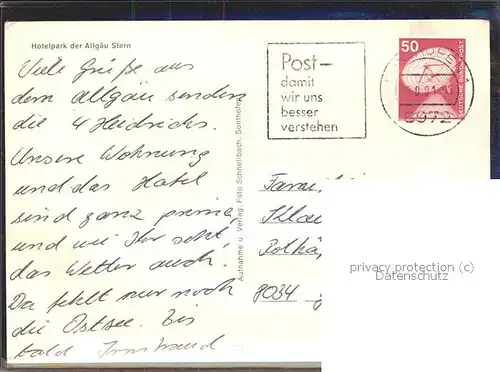 Hotelpark der Allgäu Stern
Viele Grüße aus
dem Allgäu senden
die 4 Heidrichs.
Unsere Wohnung
und das Hotel
sind ganz prima,
und wie Ihr seht,
das Wetter auch.
Da fehlt nur noch
die Ostsee. Bis
bald Irmtraud
Aufnahme u. Verlag: Foto Schnellbach, Sonthofen
Post–
damit
wir uns
besser
verstehen
50
DEUTSCHE BUNDESPOST
8972
Fam
Klau
Rothä
8034
privacy protection (c)
Datenschutz